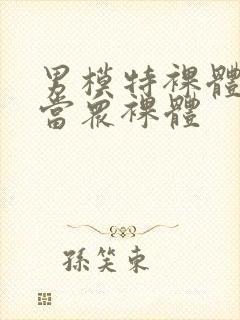 男模特裸體
當眾裸體
孫笑東